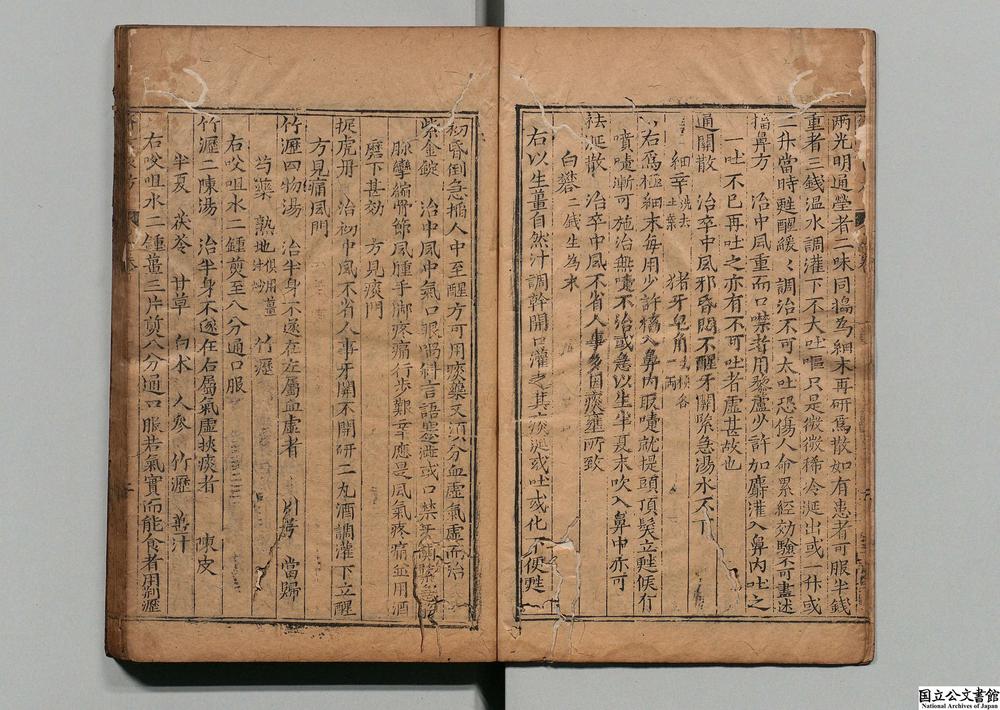 兩光明通瑩者二味同搗為細末再研為散如有患者可服半錢
重者三錢温水調灌下不大吐嘔只是微微稀冷涎出或一升或
二升當時甦醒緩々調治不可太吐恐傷人命累經効驗不可盡述
搐鼻方　治中風重而口噤者用藜蘆少許加麝灌入鼻内吐之
一吐不已再吐之亦有不可吐者虚甚故也
通關散　治卒中風邪昏悶不醒牙關緊急湯水不下
細辛洗去土葉　猪牙皂角去
右為極細末每用少許搐入鼻内取嚏就提頭頂髮立甦候有
嚏漸可施治無嚏不治或急以生半夏末吹入鼻中亦可
祛涎散　治卒中風不省人事多因痰壅所致
白礬二錢生為末
右以生薑自然汁調幹開口灌之其痰涎或吐或化不便甦
初昏倒急掐人中至醒方可用痰藥又須分血虚氣虚而治
紫金錠　治中風中氣口眼喎斜言語蹇澁或口禁牙關緊急
脉攣縮骨節風腫手脚疼痛行步艱辛應是風氣疼痛並用酒
磨下甚効　方見痰門
捉虎丹　治初中風不省人事牙關不開研二丸酒調灌下立醒
方見痛風門
竹瀝四物湯　治半身不遂在左屬血虚者　川芎　當歸
芍藥　熟地俱用薑汁炒　竹瀝
右㕮咀水二鍾煎至八分通口服
竹瀝二陳湯　治半身不遂在右屬氣虚挾痰者　陳皮
半夏　茯苓　甘草　白术　人參　竹瀝　薑汁
右㕮咀水二鍾薑三片煎八分通口服若氣實而能食者用荆瀝
国立公文書館
National Archives of Japan